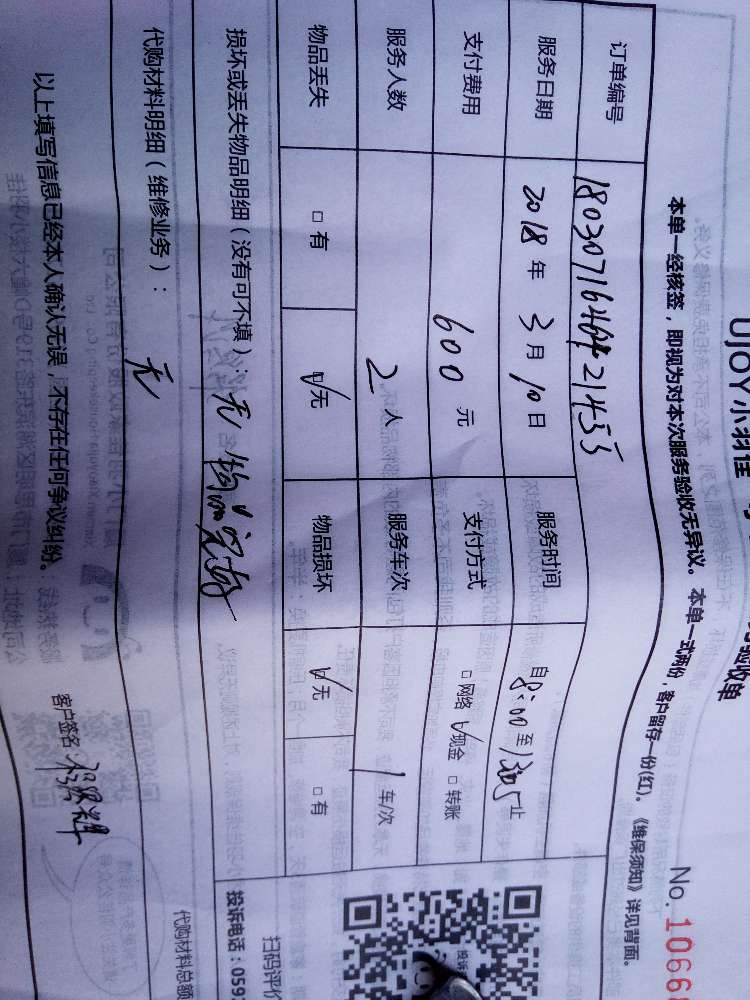 UJOY小羽佳
验收单
No.1066
本单一经核签，即视为对本次服务验收无异议。本单一式两份，客户留存一份(红)。《维保须知》详见背面。
订单编号 18030716464421455
服务日期 2018年3月10日 服务时间 自8:00至 止
支付费用 600元 支付方式 □网络 ☑现金 □转账
服务人数 2人 服务车次 1车/次
物品丢失 □有 ☑无 物品损坏 ☑无 □有
损坏或丢失物品明细（没有可不填）：无 物品完好
代购材料明细（维修业务）：无
代购材料总额
扫码评价
投诉电话：059
以上填写信息已经本人确认无误，不存在任何争议纠纷。 客户签名：